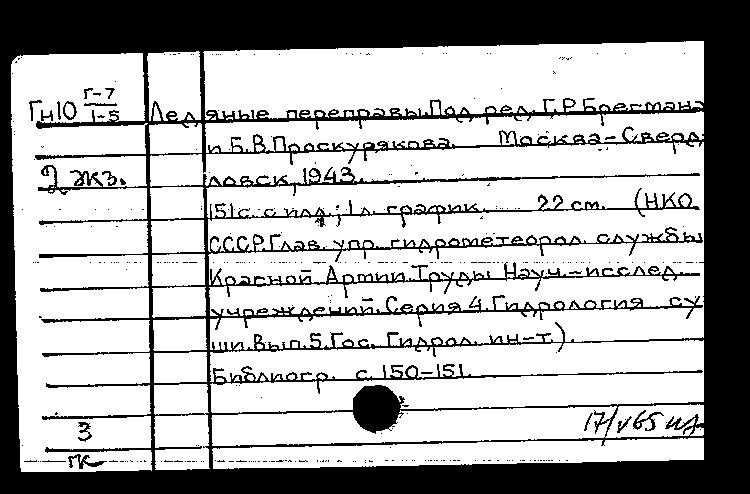 Гн10 Г-7/1-5 Ледяные переправы. Под ред. Г.Р. Брегмана
и Б.В. Проскурякова. Москва-Сверд-
2 экз. ловск, 1943.
151 с. с илл.; 1 л. график. 22 см. (НКО
СССР. Глав. упр. гидрометеорол. службы
Красной Армии. Труды Науч.-исслед.
учреждений. Серия 4. Гидрология су-
ши. Вып. 5. Гос. Гидрол. ин-т).
Библиогр. с. 150-151.
3
17/V 65